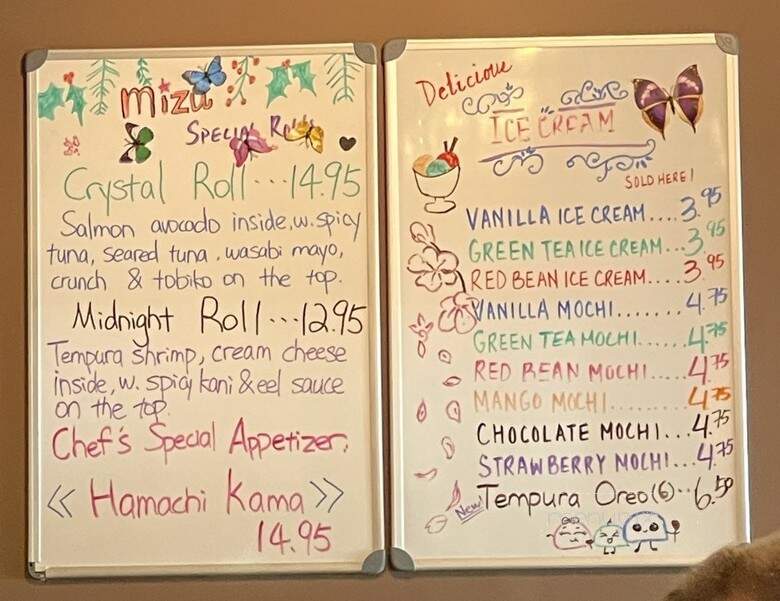 Mizu
Special Rolls
Crystal Roll...14.95
Salmon avocado inside, w. spicy
tuna, seared tuna, wasabi mayo,
crunch & tobiko on the top.
Midnight Roll...12.95
Tempura shrimp, cream cheese
inside, w. spicy kani & eel sauce
on the top.
Chef's Special Appetizer.
<< Hamachi Kama >>
14.95
Delicious
ICE CREAM
SOLD HERE!
VANILLA ICE CREAM....3.95
GREEN TEA ICE CREAM...3.95
RED BEAN ICE CREAM....3.95
VANILLA MOCHI.......4.75
GREEN TEA MOCHI......4.75
RED BEAN MOCHI.....4.75
MANGO MOCHI.........4.75
CHOCOLATE MOCHI...4.75
STRAWBERRY MOCHI...4.75
New! Tempura Oreo (6)..6.50